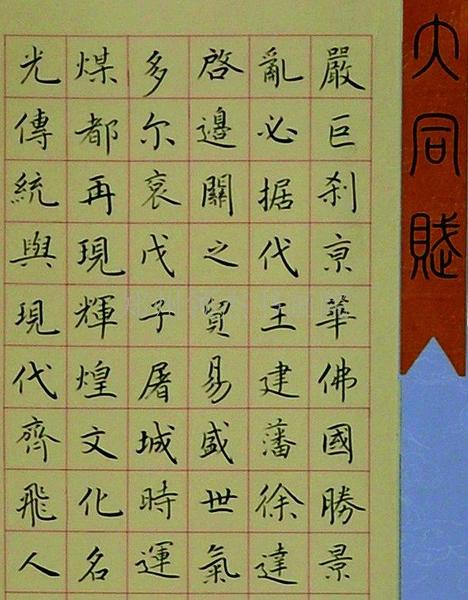 大同賦
嚴巨刹京華佛國勝景
亂必据代王建藩徐達
啓邊關之貿易盛世氣
多尔衮戊子屠城時運
煤都再現輝煌文化名
光傳統與現代齊飛人